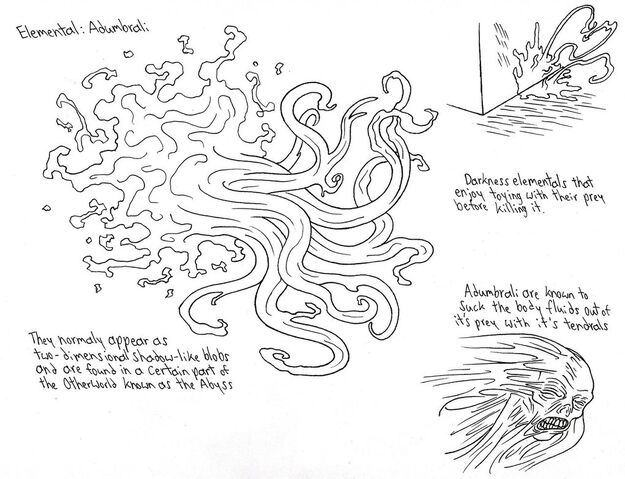 Elemental: Adumbrali
Darkness elementals that
enjoy toying with their prey
before killing it.
Adumbrali are known to
suck the body fluids out of
it's prey with it's tendrals
They normaly appear as
two-dimensional shadow-like blobs
and are found in a certain part of
the Otherworld known as the Abyss